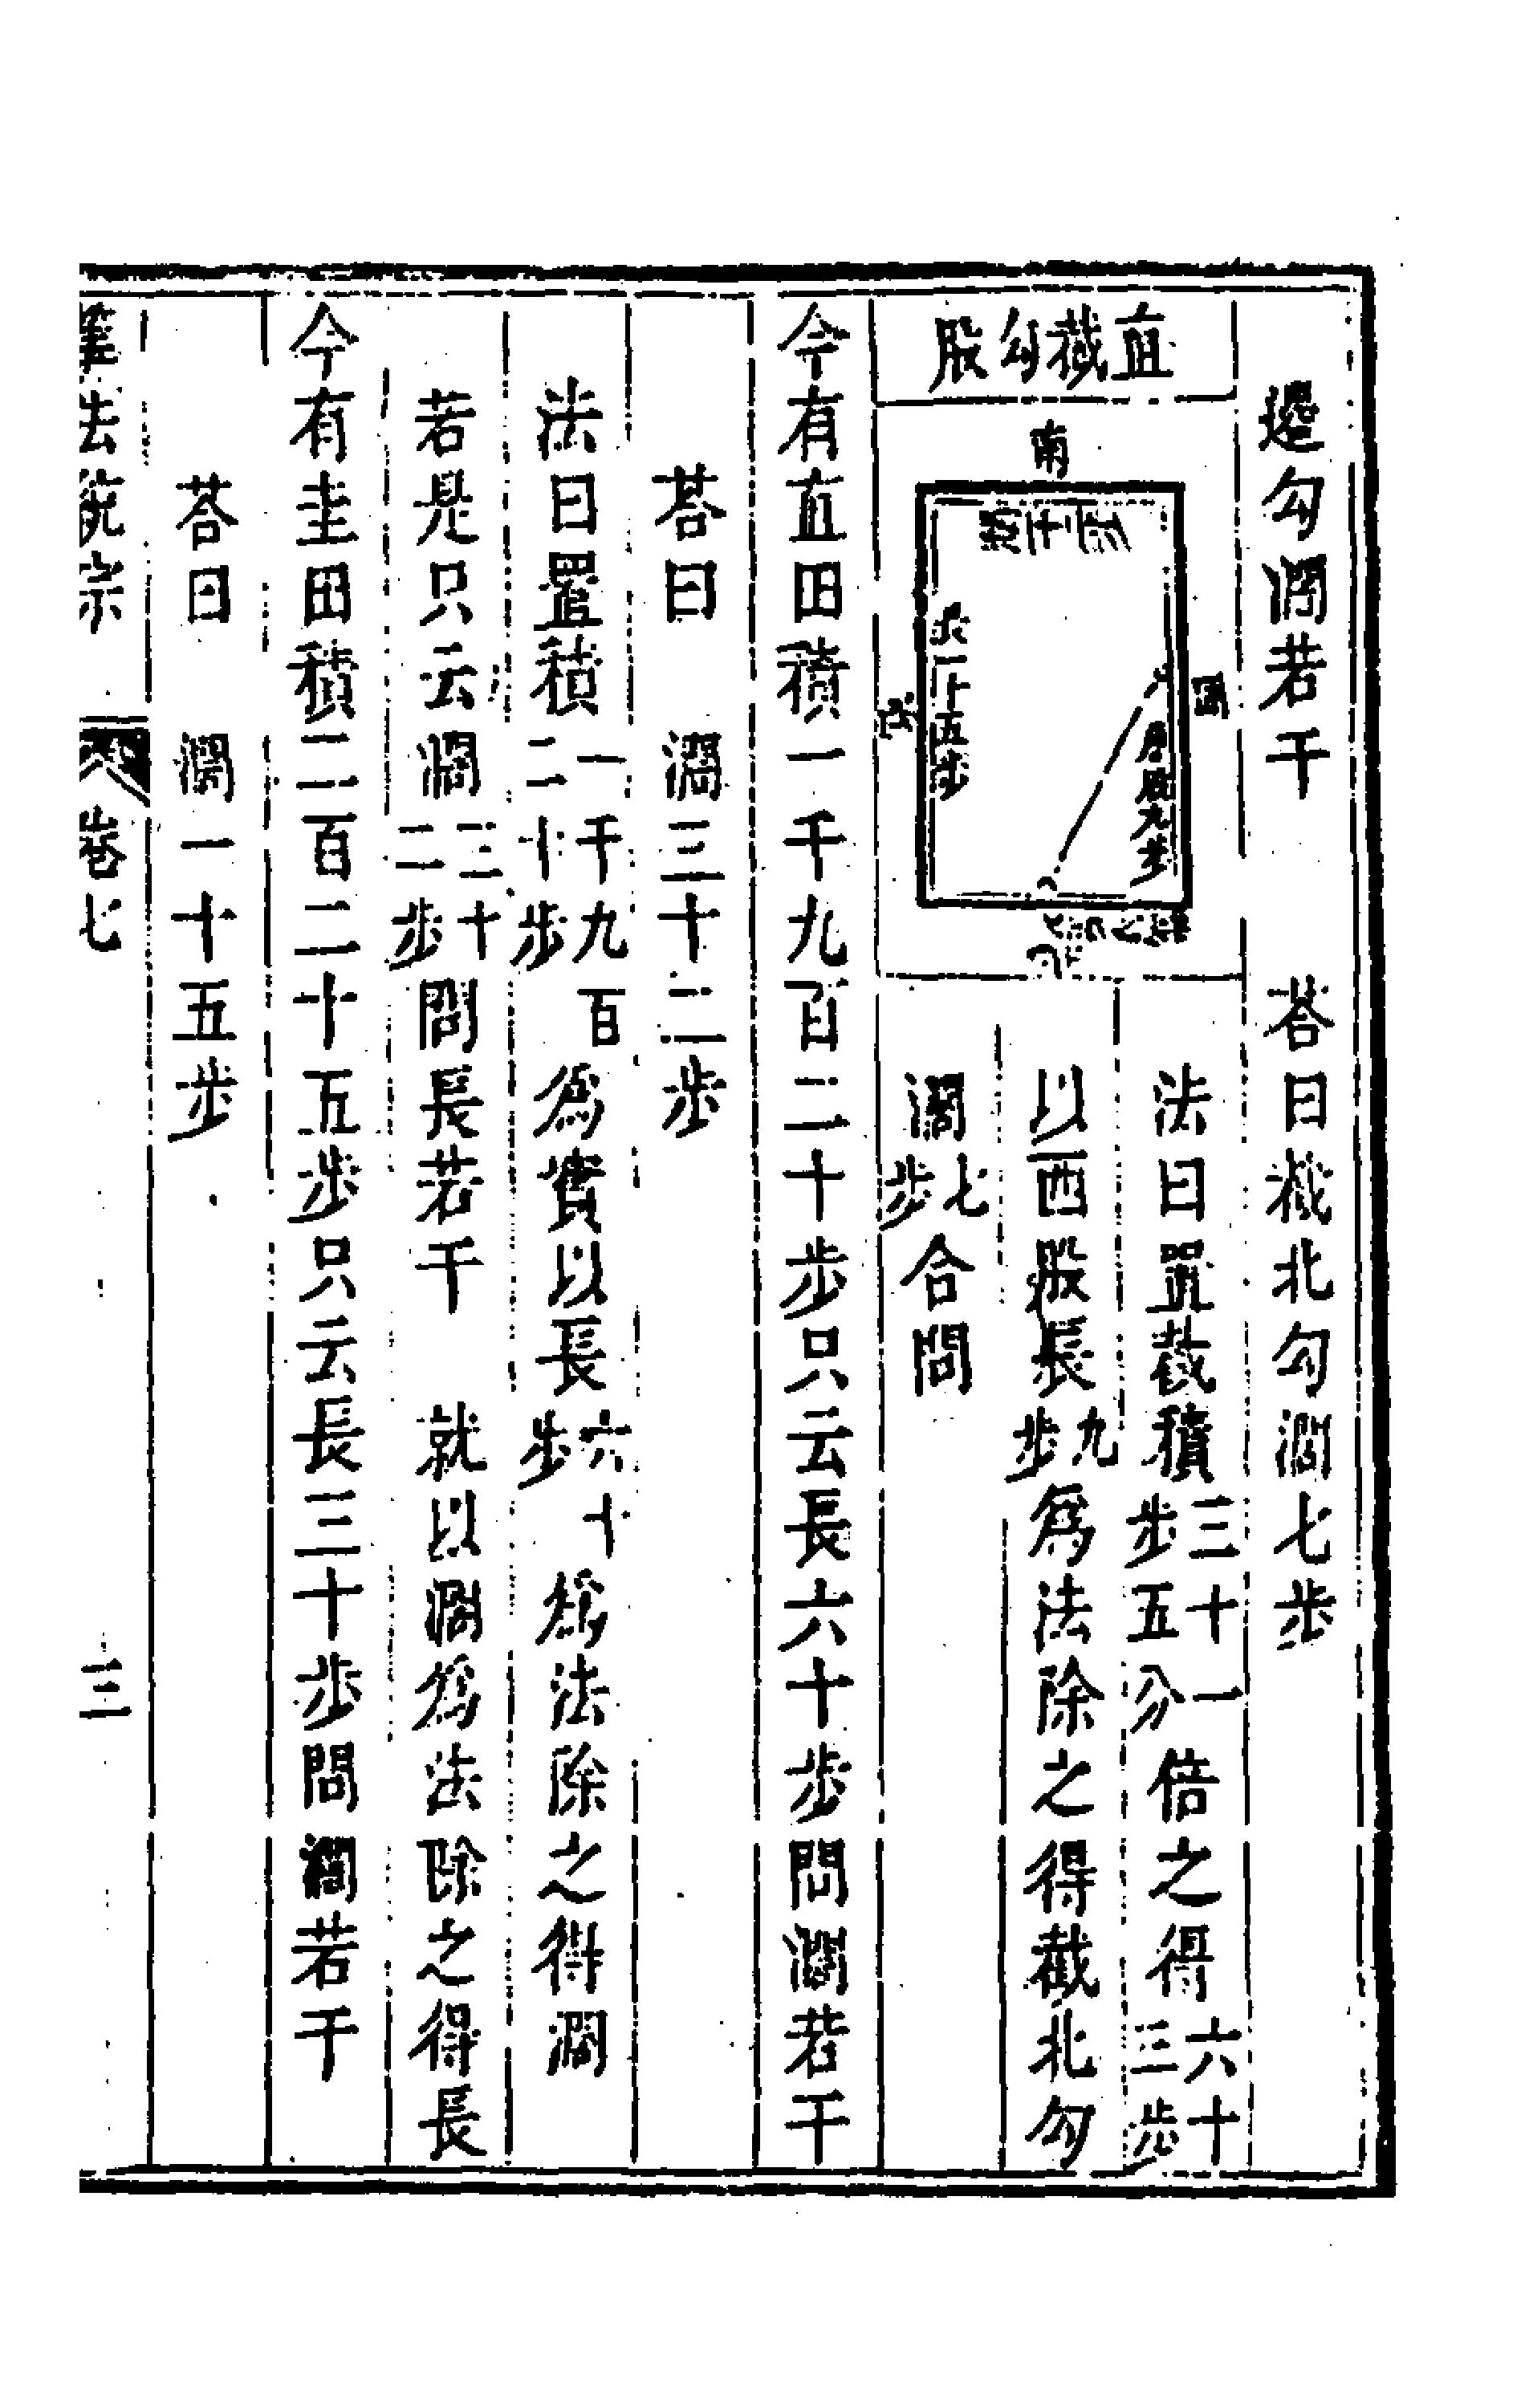 邊勾濶若干 荅曰截北勾濶七步
直截勾股
南
長一十五步
居股九步
法曰置截積三十一步五分倍之得六十三步
以西股長九步爲法除之得截北勾
濶七步合問
今有直田積一千九百二十步只云長六十步問濶若干
荅曰 濶三十二步
法曰置積一千九百二十步爲實以長六十步爲法除之得濶
若是只云濶三十二步問長若干 就以濶爲法除之得長
今有圭田積二百二十五步只云長三十步問濶若干
荅曰 濶一十五步
算法統宗 卷七 三